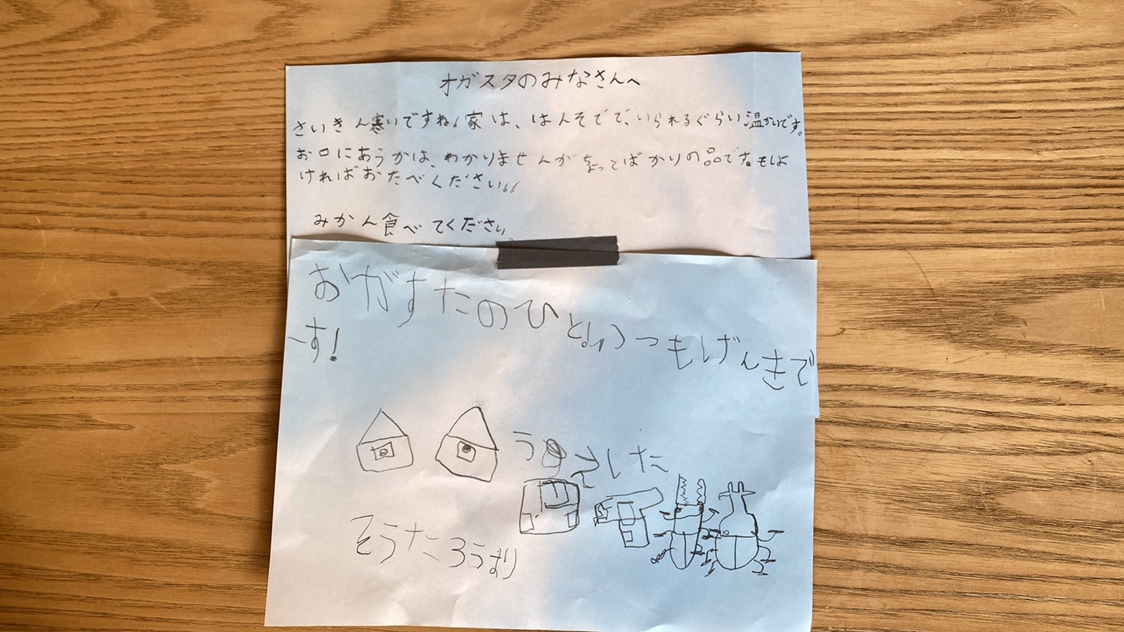 オガスタのみなさんへ
さいきん寒いですね！家は、はんそでで、いられるぐらい温かいです。
お口にあうかは、わかりませんがちょっとばかりの品ですもしよ
ければおたべください！！
みかん食べてください。
おがすたのひと いつもげんきで
す！
した
そうたろうより